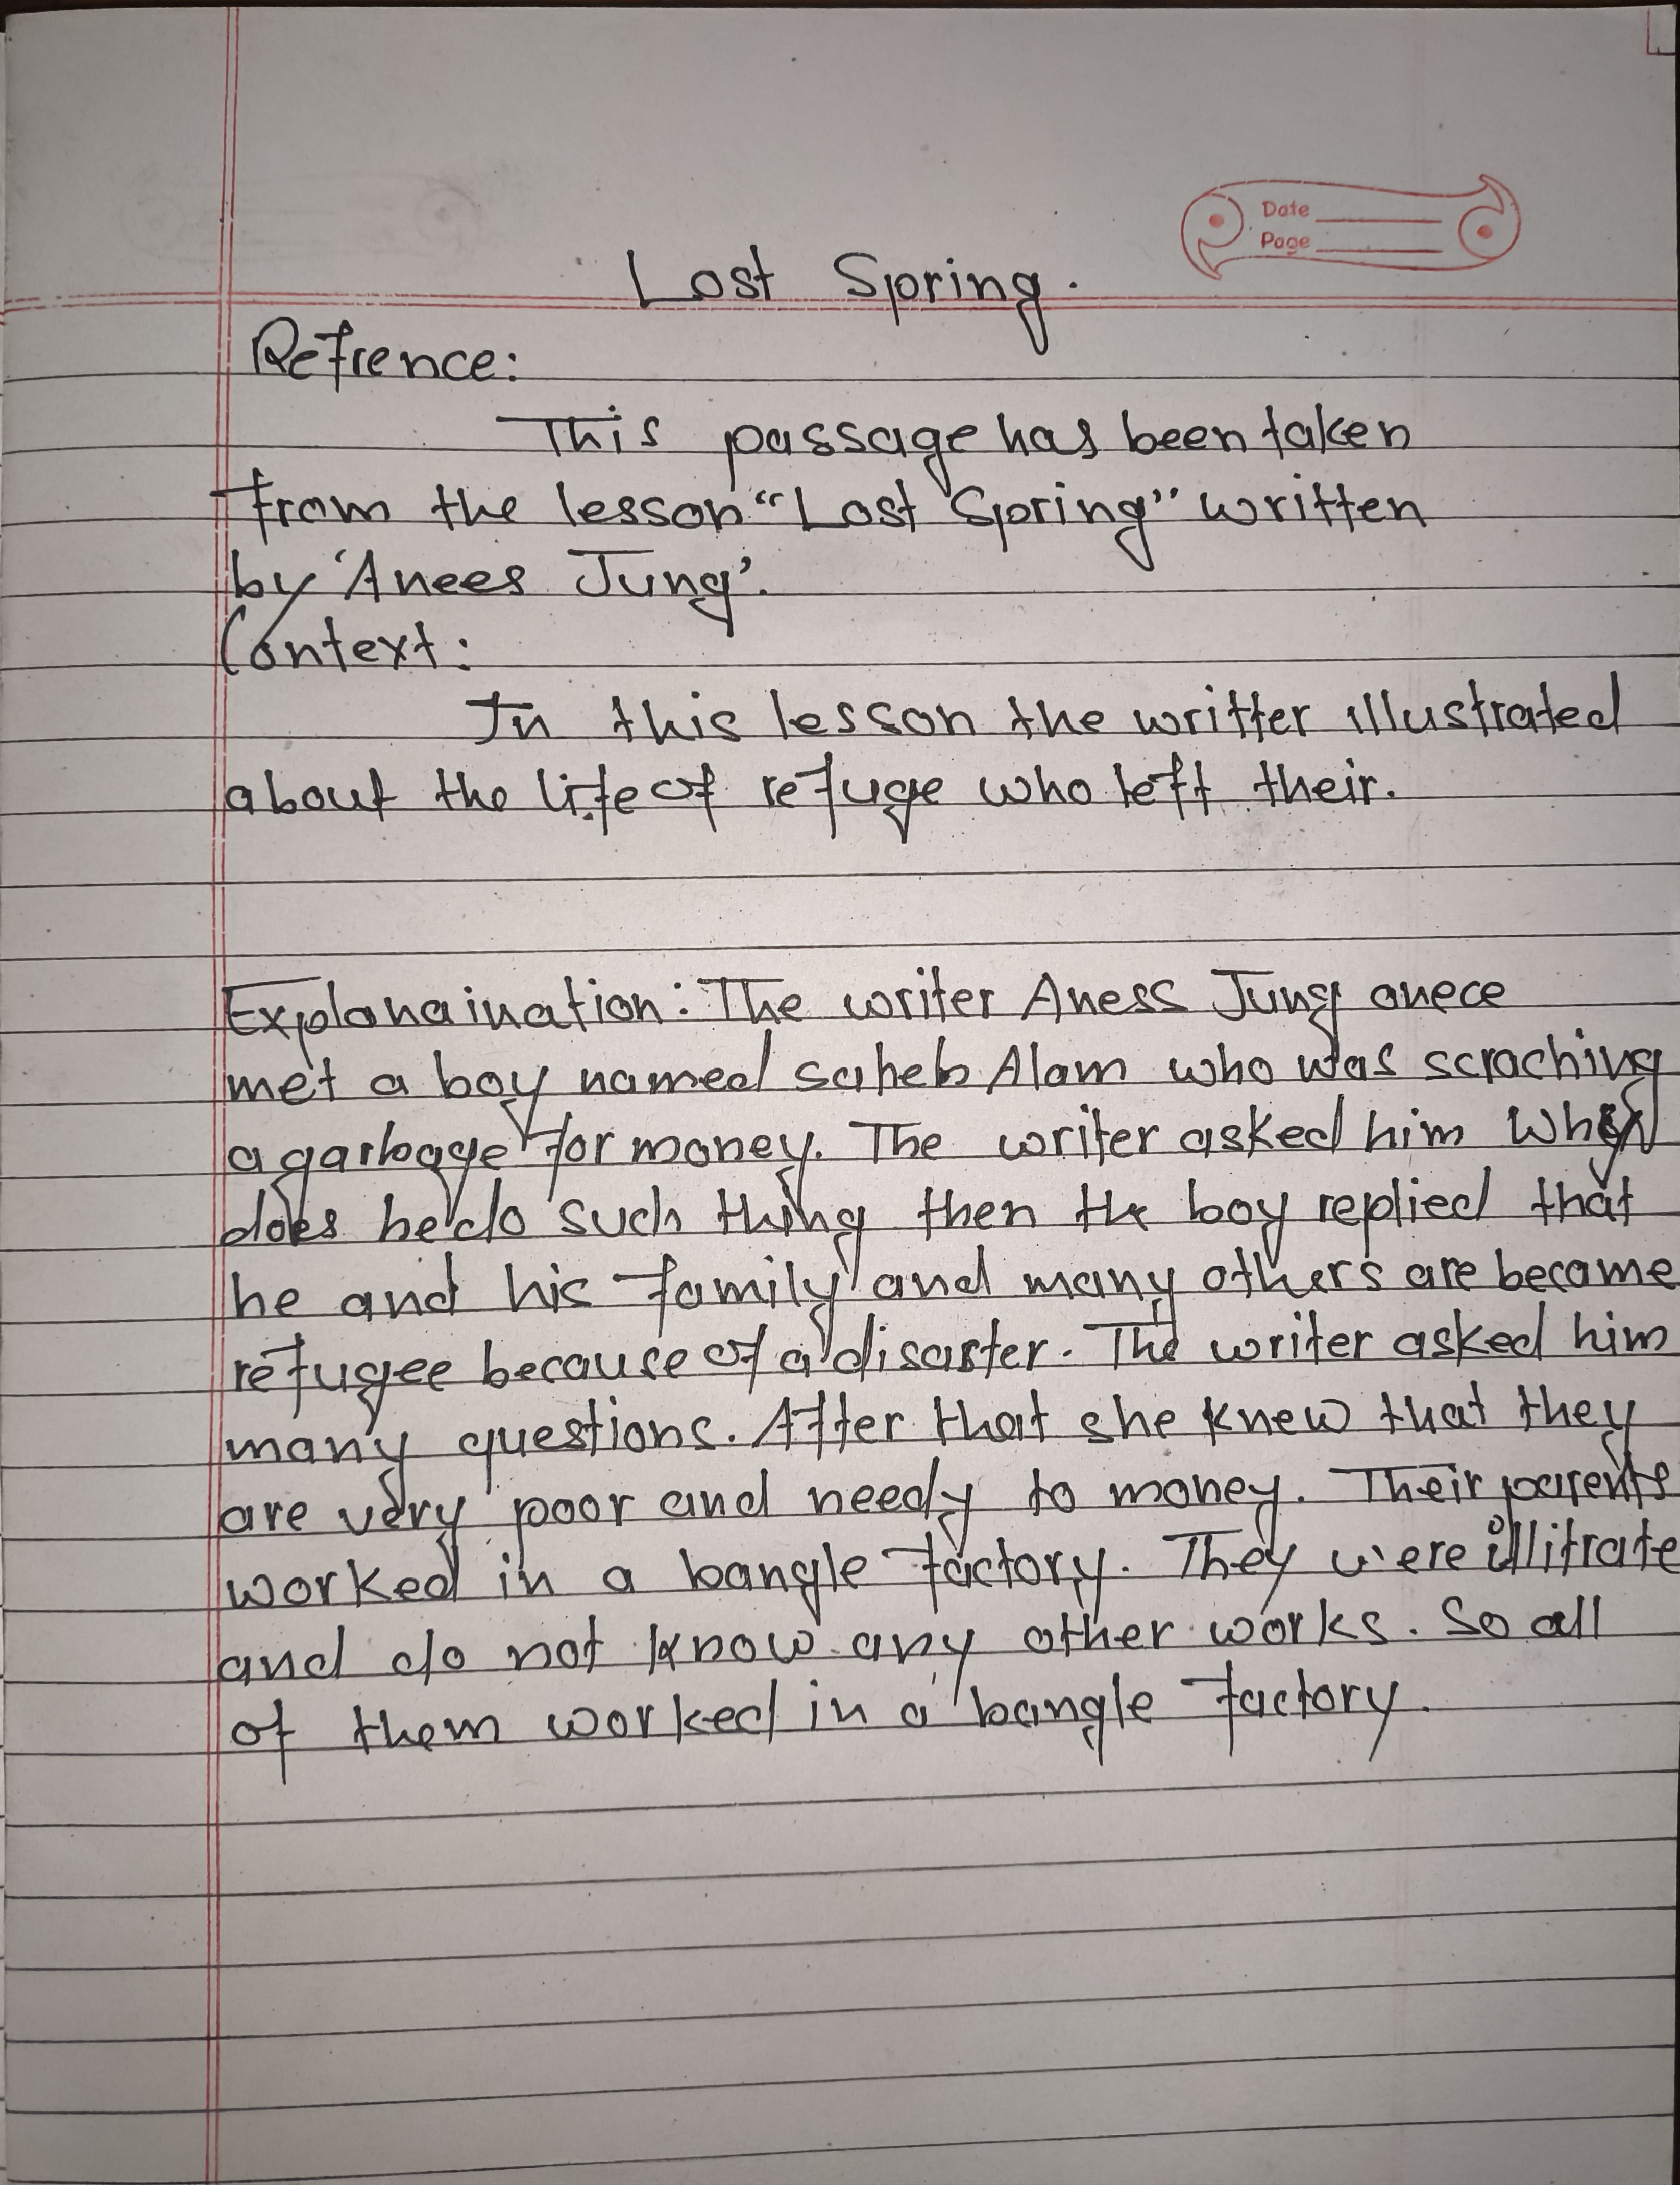 Date
Page
Lost Spring.
Refrence:
This passage has been taken
from the lesson "Lost Spring" written
by 'Anees Jung'.
Context:
In this lesson the writter illustrated
about the life of refuge who left their.
Explanaination: The writer Aness Jung onece
met a boy named saheb Alam who was scraching
a garbage for money. The writer asked him Why
does he do such thing then the boy replied that
he and his family and many others are become
refugee because of a disaster. The writer asked him
many questions. After that she knew that they
are very poor and needy to money. Their parents
worked in a bangle factory. They were illitrate
and do not know any other works. So all
of them worked in a bangle factory.